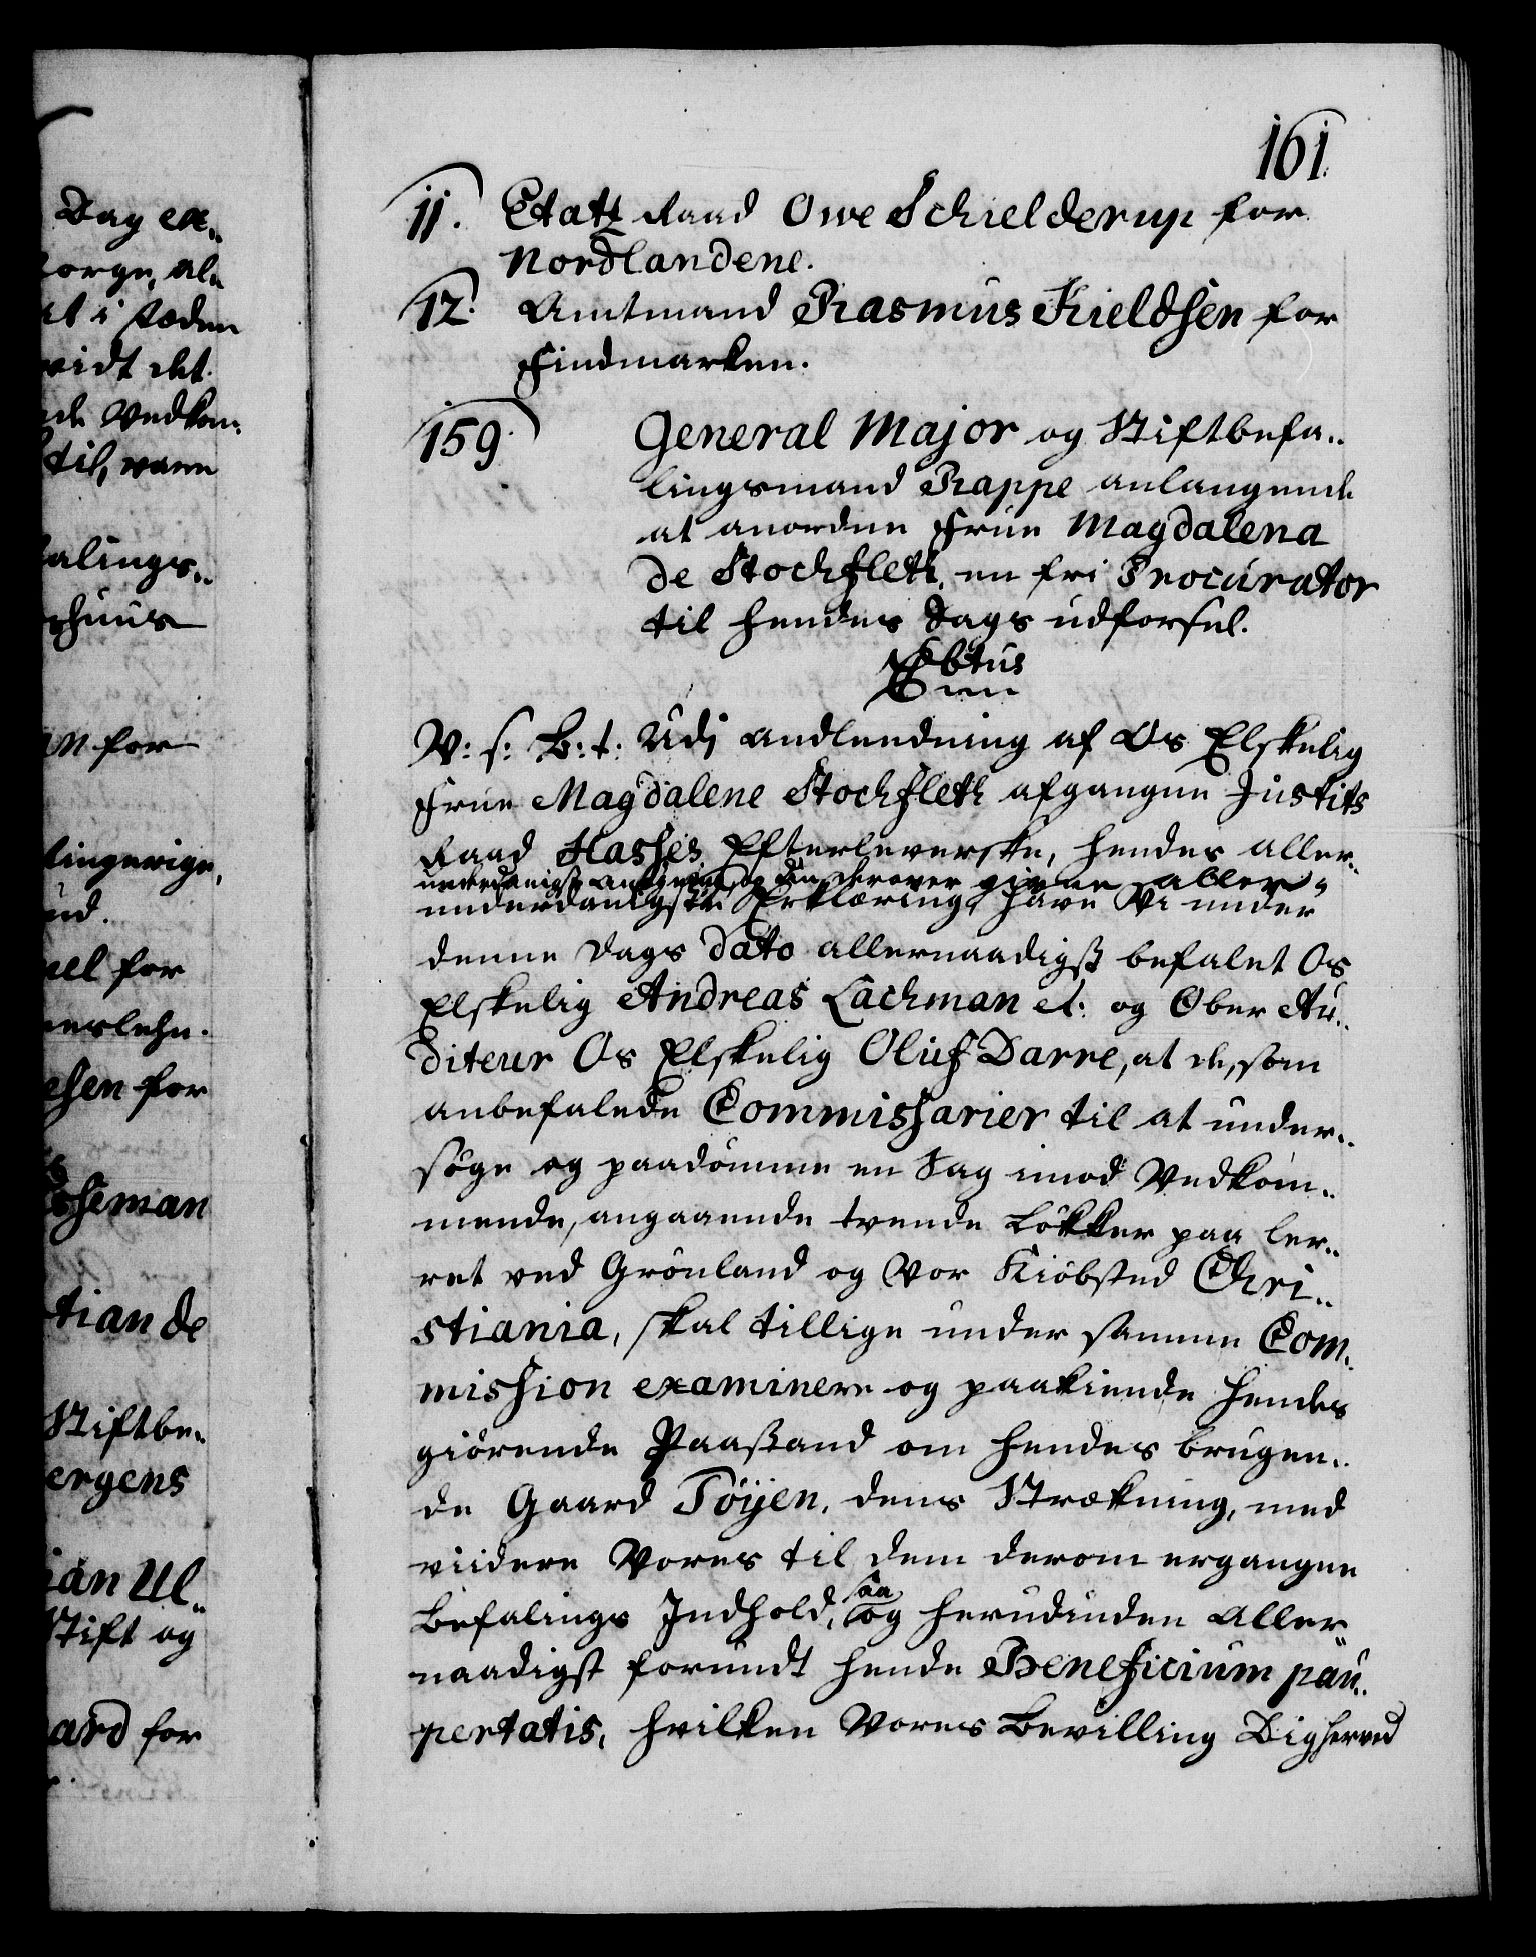 Dag ex..
sorge, al„
at i steden
vidt det
nde Vedkom„
til, vare
falings..
huus
an for
tingerige,
nd.
nel for
nerlehn.
esen for
sheman
tian de
Stiftbe„
ergens
ian Ul„
Stift og
aard for
161.
11. Etatz Raad Owe Schielderup for
Nordlandene.
12. Amtmand Rasmus Kieldsen for
Findmarken.
159. General Major og Stiftbefa..
lingsmand Rappe anlangende
at anordne Frue Magdalena
de Stochfleth, en fri Procurator
til hendes Sags udførsel.
V: s: B: t: Udi andledning af Os Elskelig
Frue Magdalene Stochfleth afgangne Justits
Raad Hasses Efterleverske, hendes aller„
underdanigst ansøgning og din derover givne aller„
underdanigste Erklæring, have Vi under
denne Dags Dato allernaadigst befalet Os
Elskelig Andreas Lachman etc: og Ober Au..
diteur Os Elskelig Oluf Darre, at de, som
anbefalede Commissarier til at under..
søge og paadømme en Sag imod Vedkom„
mende, angaaende tvende Løkker paa Ler..
ret ved Grønland og Vor Kiøbsted Chri..
stiania, skal tillige under samme Com„
mission examinere og paakiende hendes
giørende Paastand om hendes brugen..
de Gaard Tøyen, dens Strækning, med
viidere Vores til dem derom ergangne
Befalings Indhold, saa og herudinden Aller„
naadigst forundt hende Beneficium pau„
pertatis, hvilken Vores Bevilling Dig herved